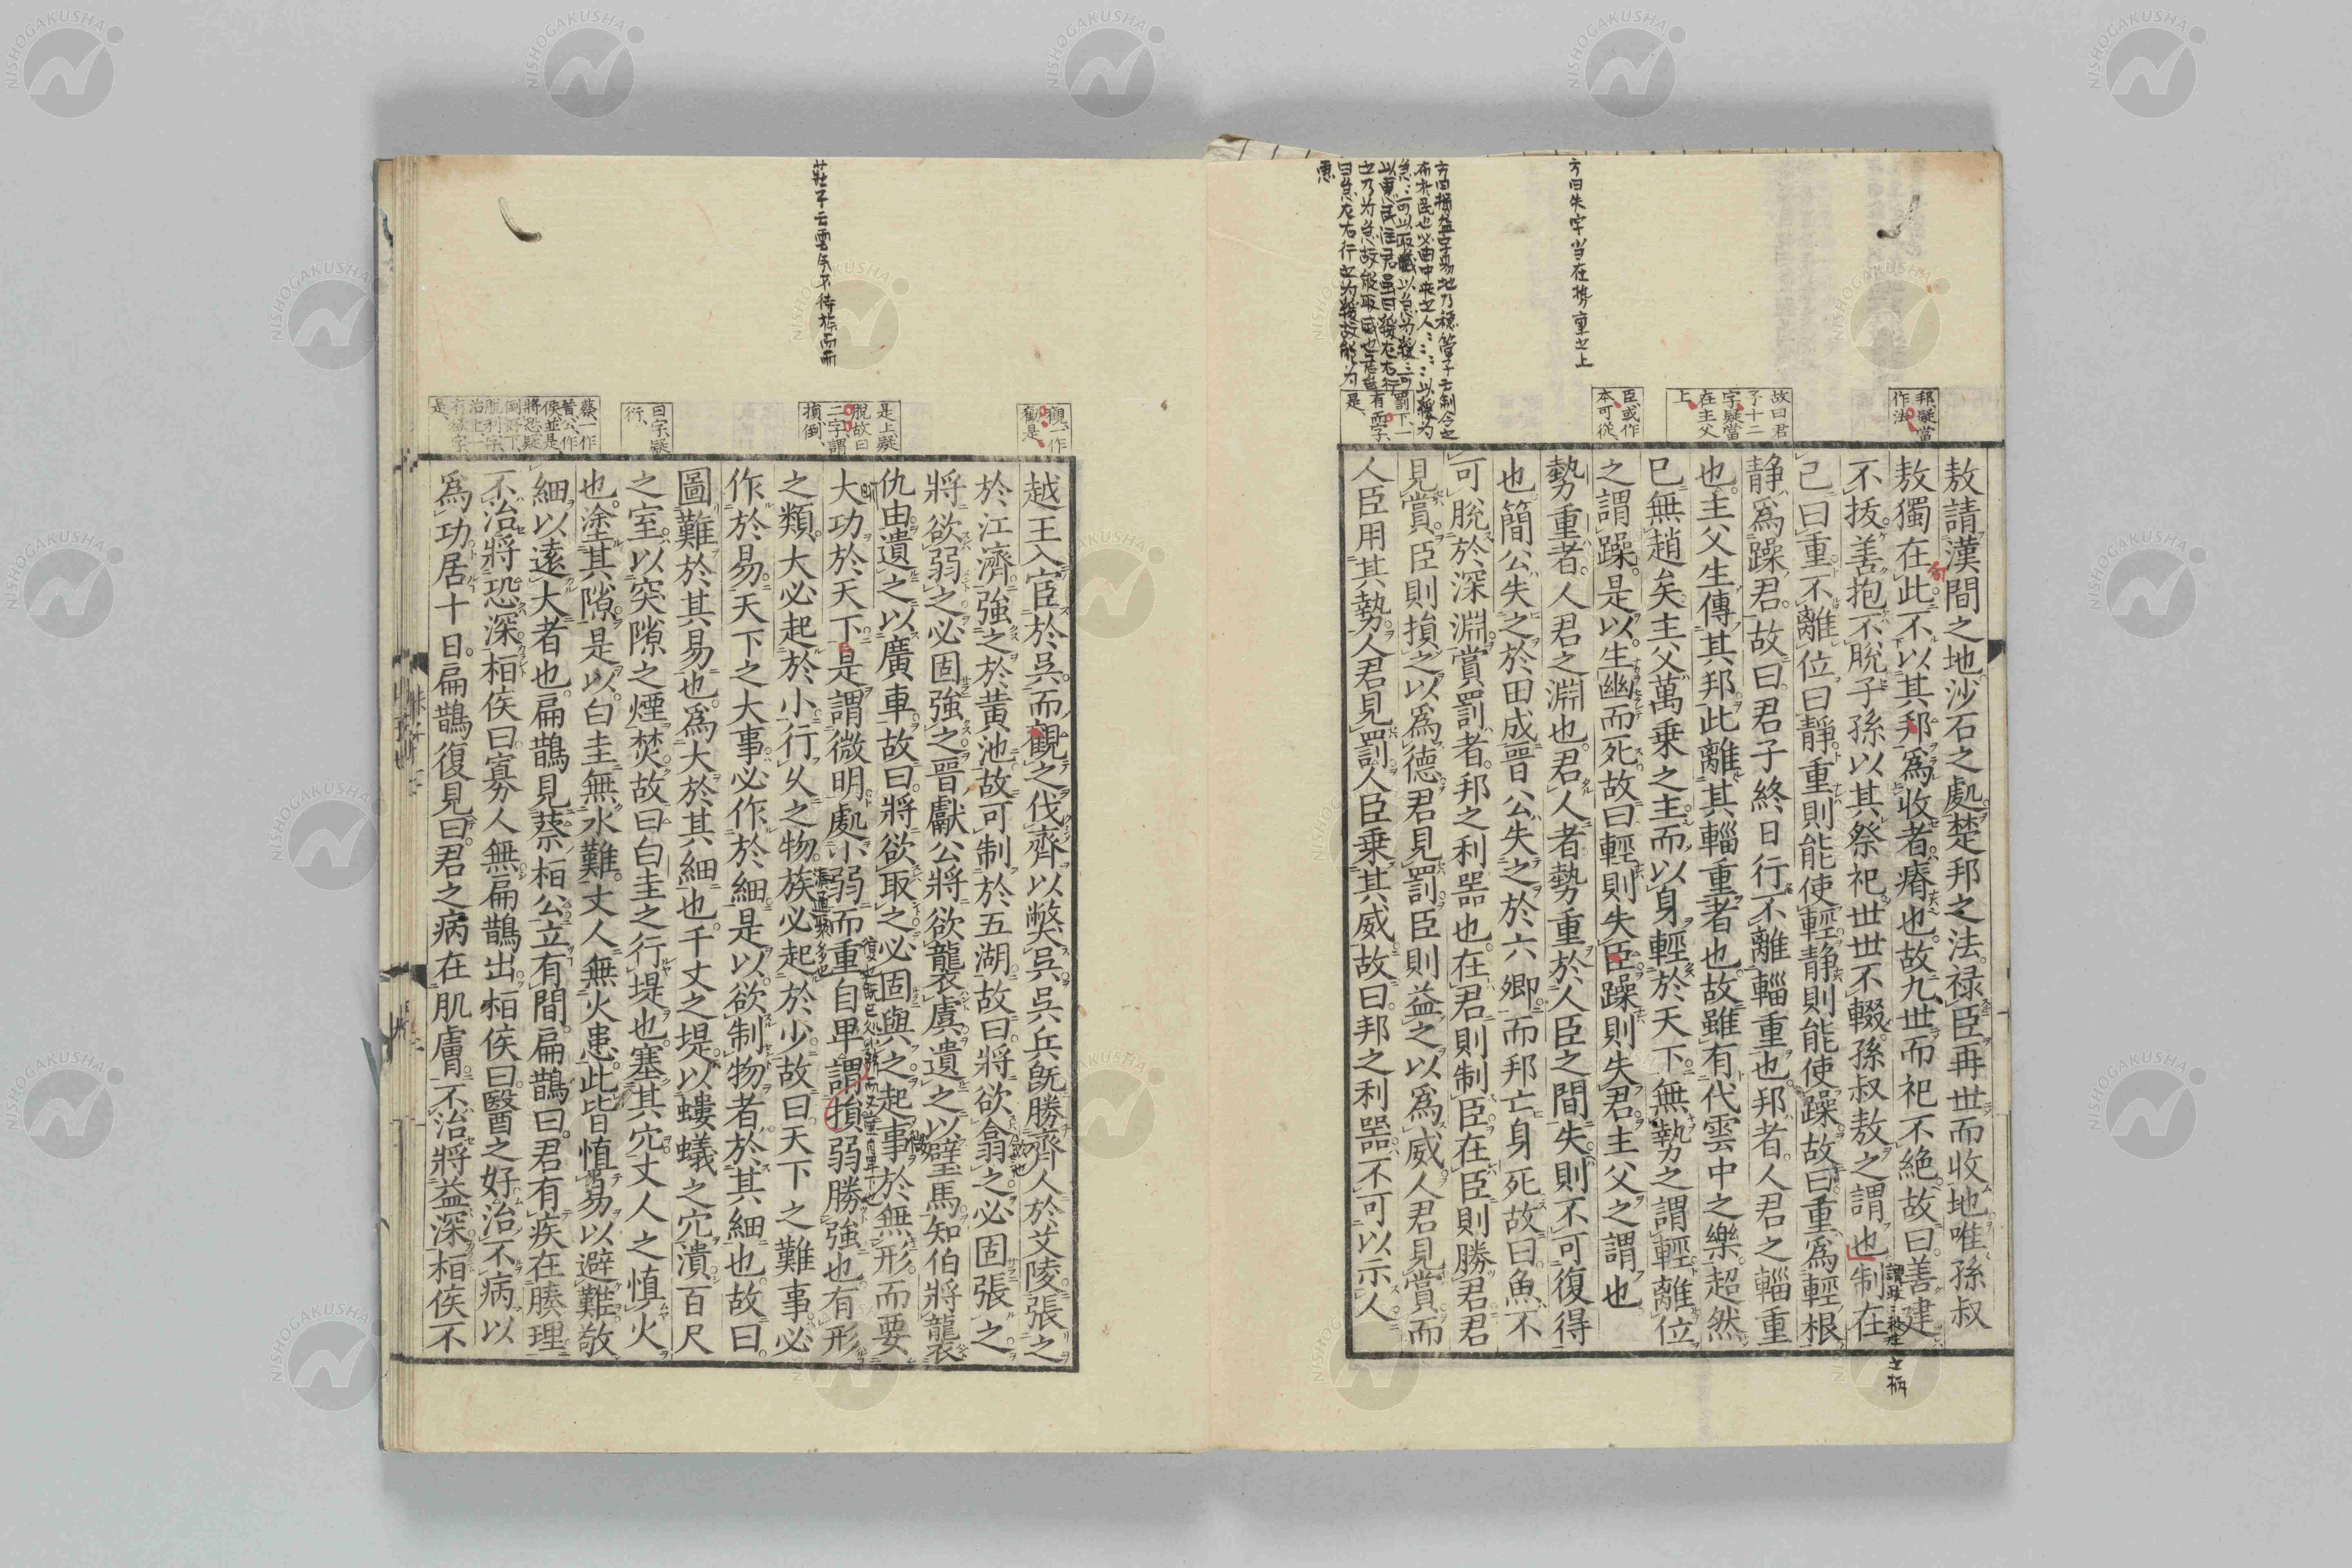 敖請漢間之地沙石之處楚邦之法禄臣再世而收地唯孫叔
敖獨在此不以其邦爲收者瘠也故九世而祀不絶故曰善建
不拔善抱不脱子孫以其祭祀世世不輟孫叔敖之謂也制在
己曰重不離位曰靜重則能使輕静則能使躁故曰重爲輕根
静爲躁君故曰君子終日行不離輜重也邦者人君之輜重
也主父生傳其邦此離其輜重者也故雖有代雲中之樂超然
已無趙矣主父萬乗之主而以身輕於天下無勢之謂輕離位
之謂躁是以生幽而死故曰輕則失臣躁則失君主父之謂也
勢重者人君之淵也君人者勢重於人臣之間失則不可復得
也簡公失之於田成晋公失之於六卿而邦亡身死故曰魚不
可脱於深淵賞罰者邦之利器也在君則制臣在臣則勝君君
見賞臣則損之以爲德君見罰臣則益之以爲威人君見賞而
人臣用其勢人君見罰人臣乗其威故曰邦之利器不可以示人
邦疑當
作法
故曰君
子十二
字疑當
在主父
上
臣或作
本可從
有而字
是
方曰失字当在勢重之上
謂政之柄
越王入宦於呉而觀之伐齊以獘呉呉兵既勝齊人於艾陵張之
於江濟強之於黄池故可制於五湖故曰將欲翕之必固張之
將欲弱之必固強之晋獻公將欲襲虞遺之以璧馬知伯將襲
仇由遺之以廣車故曰將欲取之必固與之起事於無形而要
大功於天下是謂微明處小弱而重自卑謂損弱勝強也有形
之類大必起於小行久之物族必起於少故曰天下之難事必
作於易天下之大事必作於細是以欲制物者於其細也故曰
圖難於其易也爲大於其細也千丈之堤以螻蟻之穴潰百尺
之室以突隙之煙焚故曰白圭之行堤也塞其穴丈人之慎火
也塗其隙是以白圭無水難丈人無火患此皆慎易以避難敬
細以遠大者也扁鵲見蔡桓公立有間扁鵲曰君有疾在腠理
不治將恐深桓侯曰寡人無扁鵲出桓侯曰醫之好治不病以
爲功居十日扁鵲復見曰君之病在肌膚不治將益深桓侯不
觀一作
勸是
是上疑
脱故曰
二字謂
損倒
曰字疑
衍
蔡一作
晉公作
侯並是
將恐疑
倒好下
脱利字
治上一
有欲字
是
莊子云雲气不待族而雨